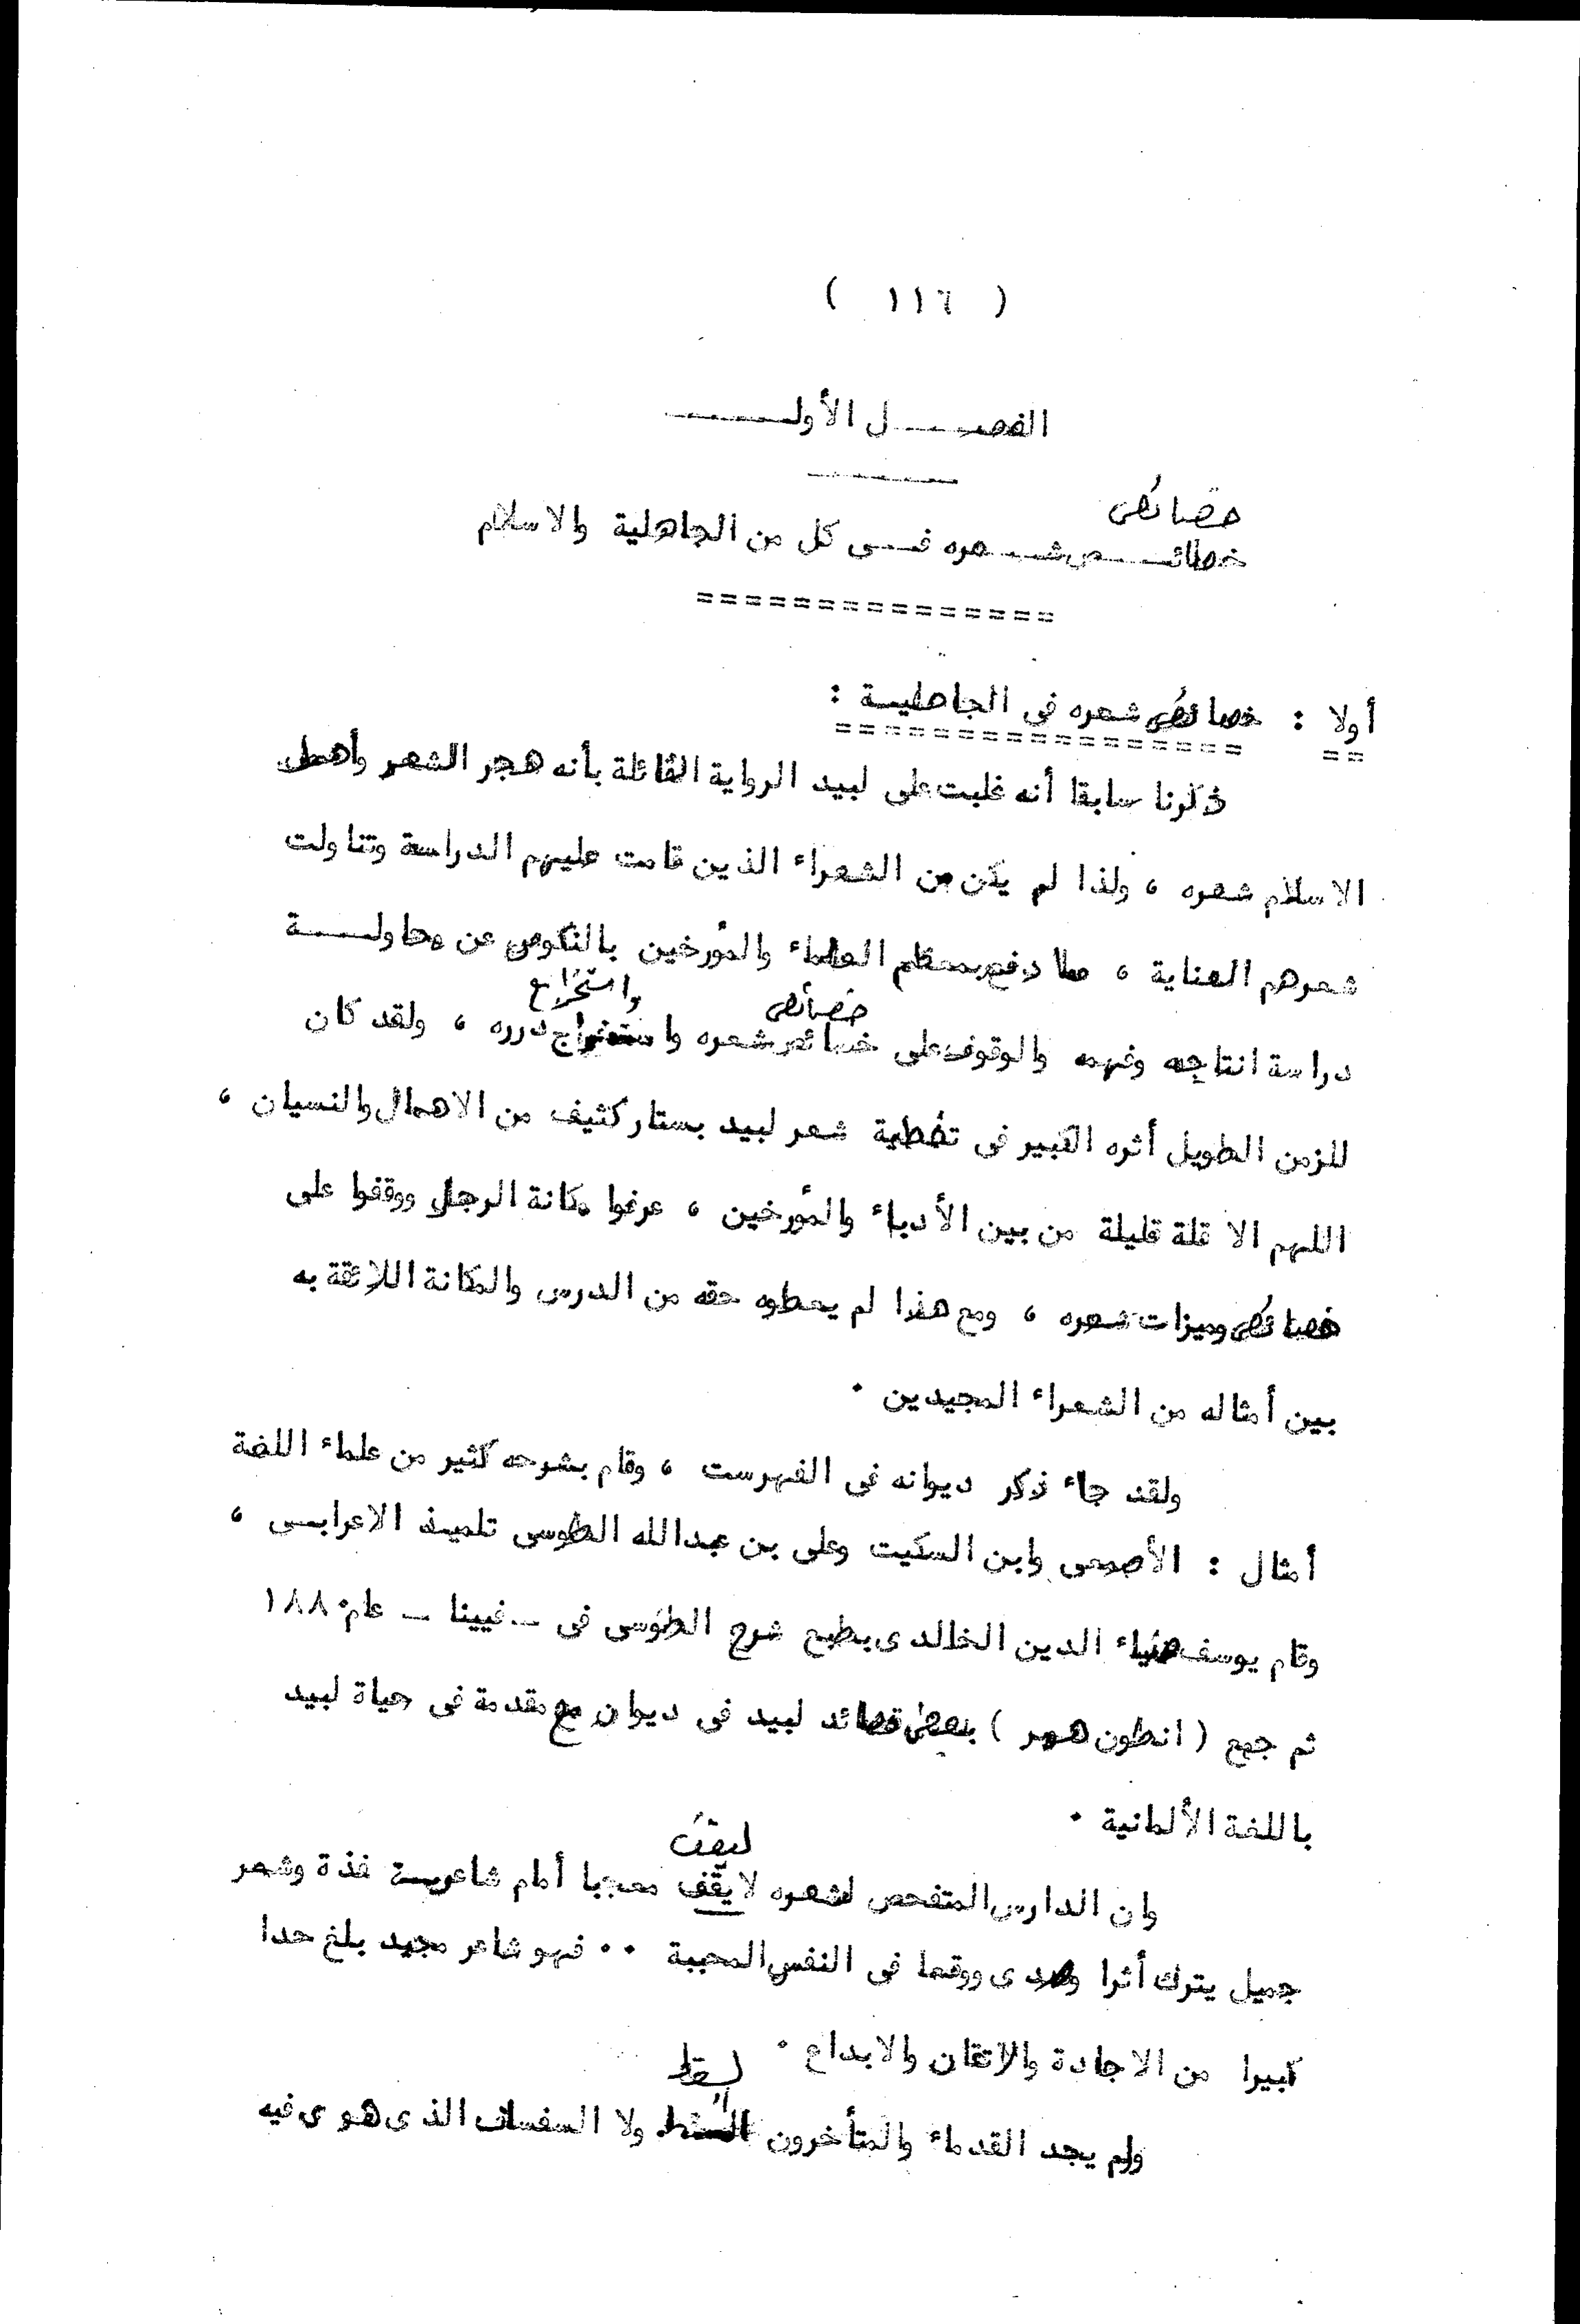 ( ١١٦ )
الفصـــل الأولــــــ
خصائص
خطائـــص شـــعره فـــى كل من الجاهلية والاسلام
===============
أولا : خصائص شعره فى الجاهليـة :
== =================
ذكرنا سابقا أنه غلبت على لبيد الرواية القائلة بأنه هجر الشعر وأهمل
الاسلام شعره ، ولذا لم يكن من الشعراء الذين قامت عليهم الدراسة وتناولت
شعرهم العناية ، مما دفع بمعظم العلماء والمؤرخين بالنكوص عن محاولـــة
خصائص واستخراج
دراسة انتاجه وفهمه والوقوف على خصائص شعره واستخراج درره ، ولقد كان
للزمن الطويل أثره الكبير فى تغطية شعر لبيد بستار كثيف من الاهمال والنسيان ،
اللهم الا قلة قليلة من بين الأدباء والمؤرخين ، عرفوا مكانة الرجل ووقفوا على
خصائص وميزات شعره ، ومع هذا لم يعطوه حقه من الدرس والمكانة اللائقة به
بين أمثاله من الشعراء المجيدين .
ولقد جاء ذكر ديوانه فى الفهرست ، وقام بشرحه كثير من علماء اللغة
أمثال : الأصمعى وابن السكيت وعلى بن عبدالله الطوسى تلميذ الاعرابـى ،
وقام يوسف ضياء الدين الخالدى بطبع شرح الطوسى فى _ فيينا _ عام ١٨٨٠
ثم جمع ( انطون هـبر ) بعض قصائد لبيد فى ديوان مع مقدمة فى حياة لبيد
باللغة الألمانية .
ليقف
وان الدارس المتفحص لشعره لا يقف معجبا أمام شاعريـة فذة وشعر
جميل يترك أثرا وصدى ووقعا فى النفس المحببة .. فهو شاعر مجيد بلغ حدا
كبيرا من الاجادة والاتقان والابداع .
السقط
ولم يجد القدماء والمتأخرون السقط ولا السفساف الذى هوى فيه